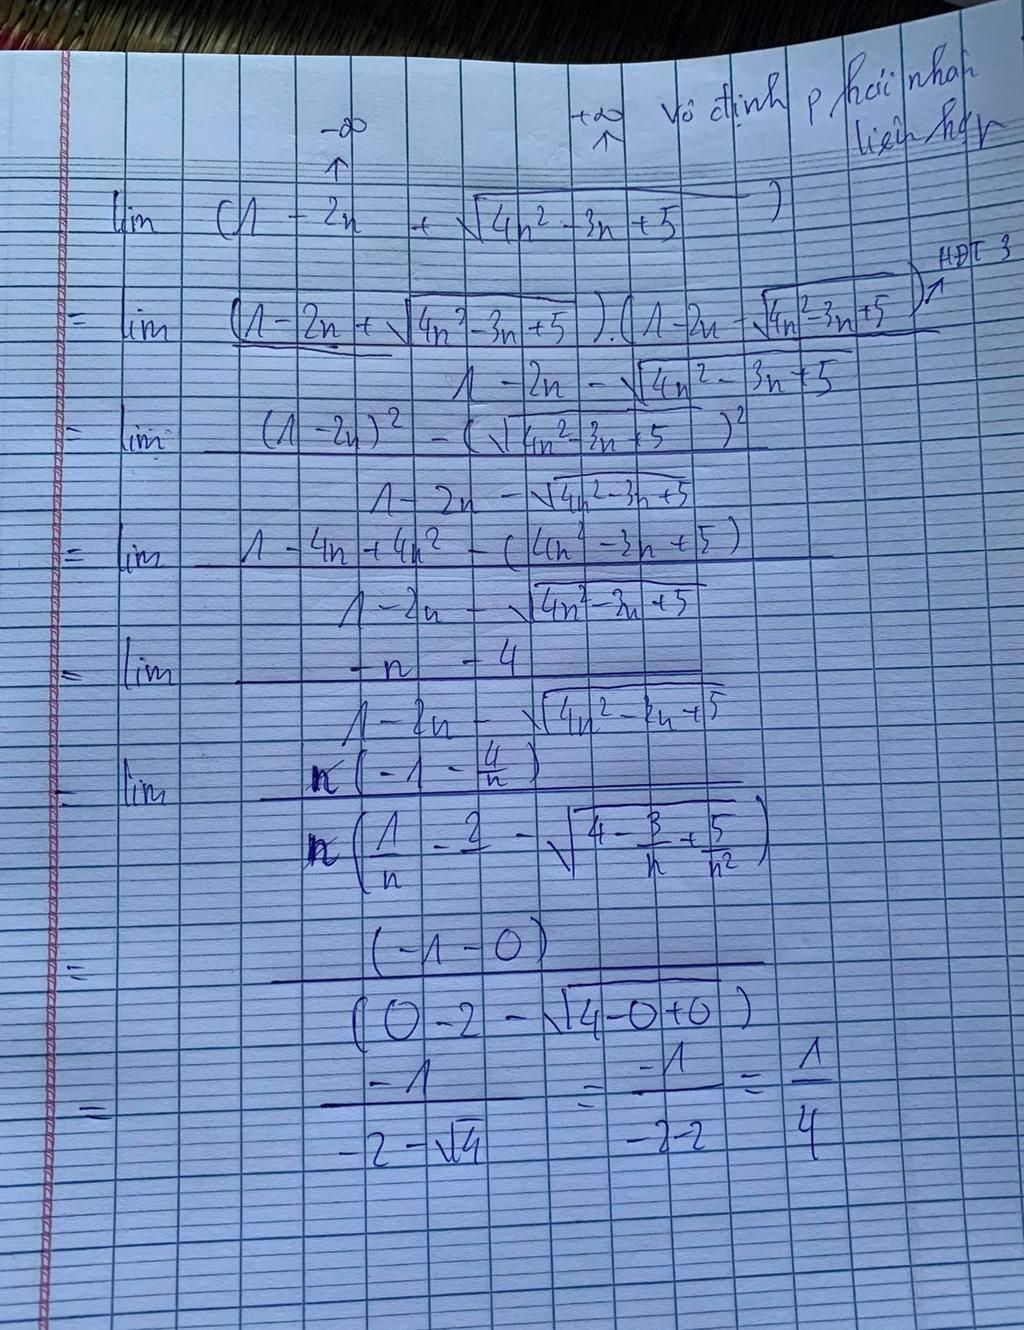 -∞ +∞ Vô định phải nhân
↑ ↑ liên hợp
lim (1 - 2n + √(4n² - 3n + 5))
HĐT 3
= lim (1 - 2n + √(4n² - 3n + 5)).(1 - 2n - √(4n² - 3n + 5))
1 - 2n - √(4n² - 3n + 5)
= lim (1 - 2n)² - (√(4n² - 3n + 5))²
1 - 2n - √(4n² - 3n + 5)
= lim 1 - 4n + 4n² - (4n² - 3n + 5)
1 - 2n - √(4n² - 3n + 5)
= lim -n - 4
1 - 2n - √(4n² - 3n + 5)
= lim n(-1 - 4/n)
n(1/n - 2 - √(4 - 3/n + 5/n²))
= (-1 - 0)
(0 - 2 - √(4 - 0 + 0))
= -1/(-2 - √4) = -1/(-2-2) = 1/4